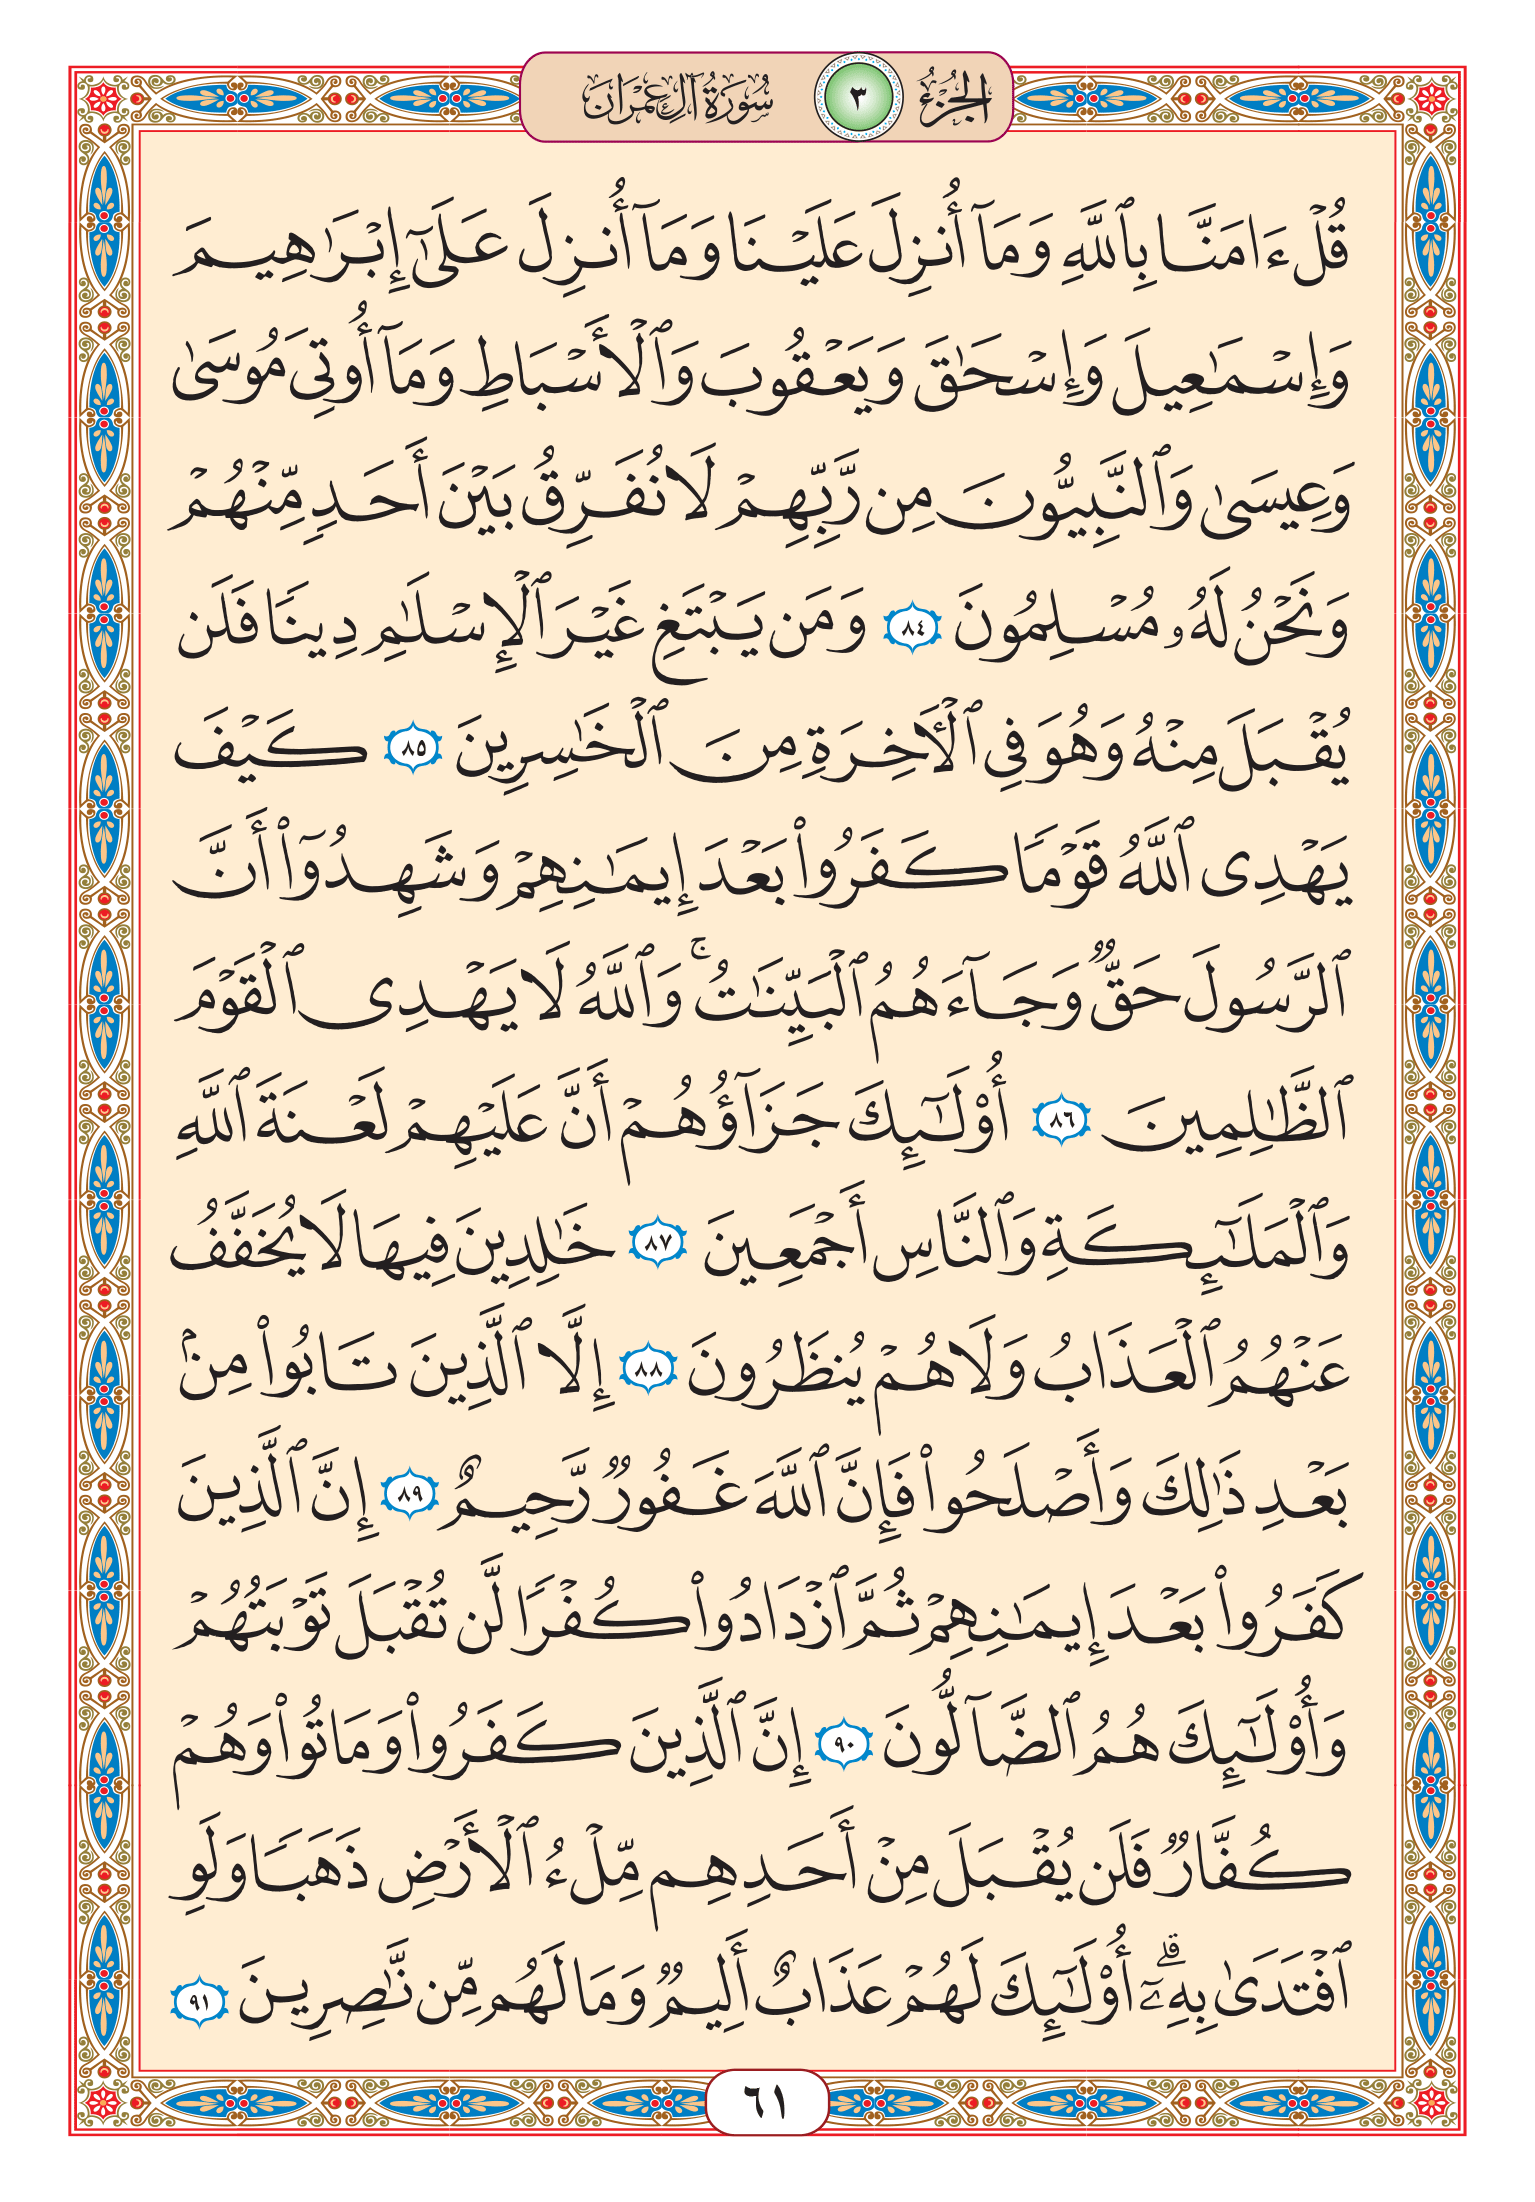 الجزء ٣ سورة آل عمران
قُلۡ ءَامَنَّا بِٱللَّهِ وَمَآ أُنزِلَ عَلَيۡنَا وَمَآ أُنزِلَ عَلَىٰٓ إِبۡرَٰهِيمَ
وَإِسۡمَٰعِيلَ وَإِسۡحَٰقَ وَيَعۡقُوبَ وَٱلۡأَسۡبَاطِ وَمَآ أُوتِيَ مُوسَىٰ
وَعِيسَىٰ وَٱلنَّبِيُّونَ مِن رَّبِّهِمۡ لَا نُفَرِّقُ بَيۡنَ أَحَدٖ مِّنۡهُمۡ
وَنَحۡنُ لَهُۥ مُسۡلِمُونَ ٨٤ وَمَن يَبۡتَغِ غَيۡرَ ٱلۡإِسۡلَٰمِ دِينٗا فَلَن
يُقۡبَلَ مِنۡهُ وَهُوَ فِي ٱلۡأٓخِرَةِ مِنَ ٱلۡخَٰسِرِينَ ٨٥ كَيۡفَ
يَهۡدِي ٱللَّهُ قَوۡمٗا كَفَرُواْ بَعۡدَ إِيمَٰنِهِمۡ وَشَهِدُوٓاْ أَنَّ
ٱلرَّسُولَ حَقّٞ وَجَآءَهُمُ ٱلۡبَيِّنَٰتُۚ وَٱللَّهُ لَا يَهۡدِي ٱلۡقَوۡمَ
ٱلظَّٰلِمِينَ ٨٦ أُوْلَٰٓئِكَ جَزَآؤُهُمۡ أَنَّ عَلَيۡهِمۡ لَعۡنَةَ ٱللَّهِ
وَٱلۡمَلَٰٓئِكَةِ وَٱلنَّاسِ أَجۡمَعِينَ ٨٧ خَٰلِدِينَ فِيهَا لَا يُخَفَّفُ
عَنۡهُمُ ٱلۡعَذَابُ وَلَا هُمۡ يُنظَرُونَ ٨٨ إِلَّا ٱلَّذِينَ تَابُواْ مِنۢ
بَعۡدِ ذَٰلِكَ وَأَصۡلَحُواْ فَإِنَّ ٱللَّهَ غَفُورٞ رَّحِيمٌ ٨٩ إِنَّ ٱلَّذِينَ
كَفَرُواْ بَعۡدَ إِيمَٰنِهِمۡ ثُمَّ ٱزۡدَادُواْ كُفۡرٗا لَّن تُقۡبَلَ تَوۡبَتُهُمۡ
وَأُوْلَٰٓئِكَ هُمُ ٱلضَّآلُّونَ ٩٠ إِنَّ ٱلَّذِينَ كَفَرُواْ وَمَاتُواْ وَهُمۡ
كُفَّارٞ فَلَن يُقۡبَلَ مِنۡ أَحَدِهِم مِّلۡءُ ٱلۡأَرۡضِ ذَهَبٗا وَلَوِ
ٱفۡتَدَىٰ بِهِۦٓۗ أُوْلَٰٓئِكَ لَهُمۡ عَذَابٌ أَلِيمٞ وَمَا لَهُم مِّن نَّٰصِرِينَ ٩١
٦١